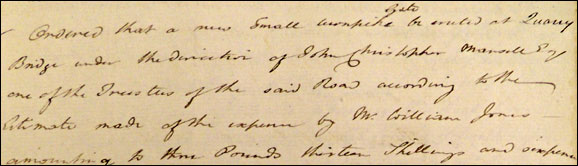 Gate
Ordered that a new Small turnpike be erected at Quarry
Bridge under the direction of John Christopher Mansell Esq
one of the Trustees of the said Road according to the
Estimate made of the expence by Mr. William Jones —
amounting to three Pounds thirteen Shillings and sixpence